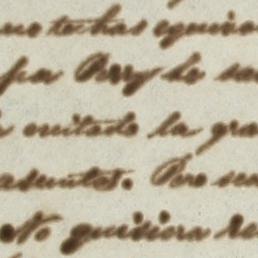 no te has equivo
por Perry he sa
evitado la gra
asuntos. Pero se
No quisiera